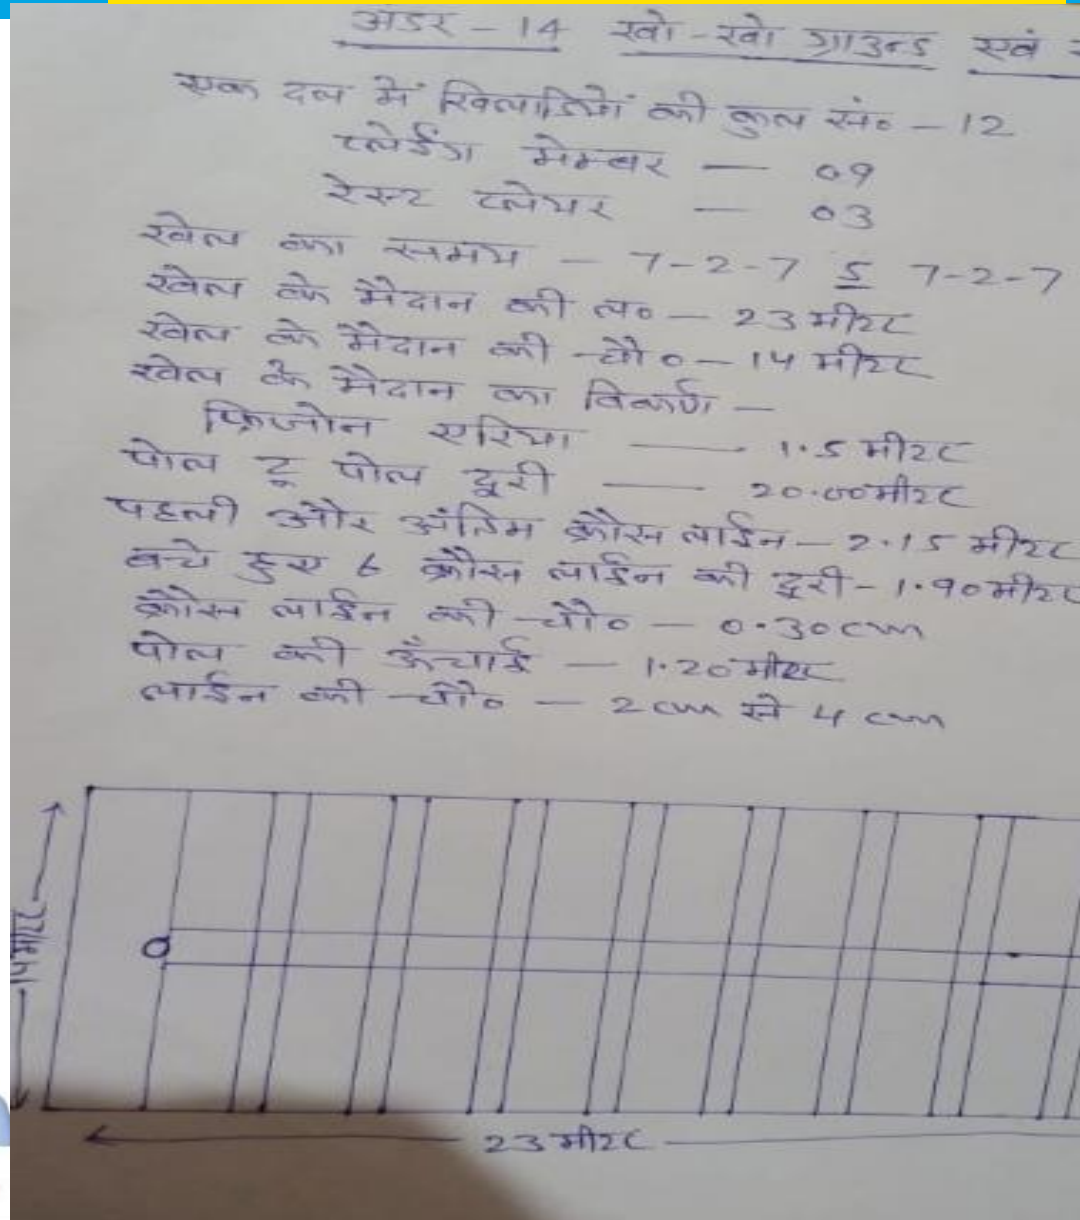 अंडर - 14 खो - खो ग्राउन्ड एवं
एक दल में खिलाडियों की कुल सं० - 12
प्लेईंग मेम्बर — 09
रेस्ट प्लेयर — 03
खेल का समय - 7-2-7 5 7-2-7
खेल के मैदान की ल० - 23 मीटर
खेल के मैदान की चौ० - 14 मीटर
खेल के मैदान का विकर्ण -
फ्रिजोन एरिया — 1.5 मीटर
पोल टू पोल दूरी — 20.00 मीटर
पहली और अंतिम क्रौस लाईन - 2.15 मीटर
बचे हुए 6 क्रौस लाईन की दूरी - 1.90 मीटर
क्रौस लाईन की चौ० - 0.30 cm
पोल की ऊँचाई - 1.20 मीटर
लाईन की चौ० - 2 cm से 4 cm
14 मीटर
23 मीटर